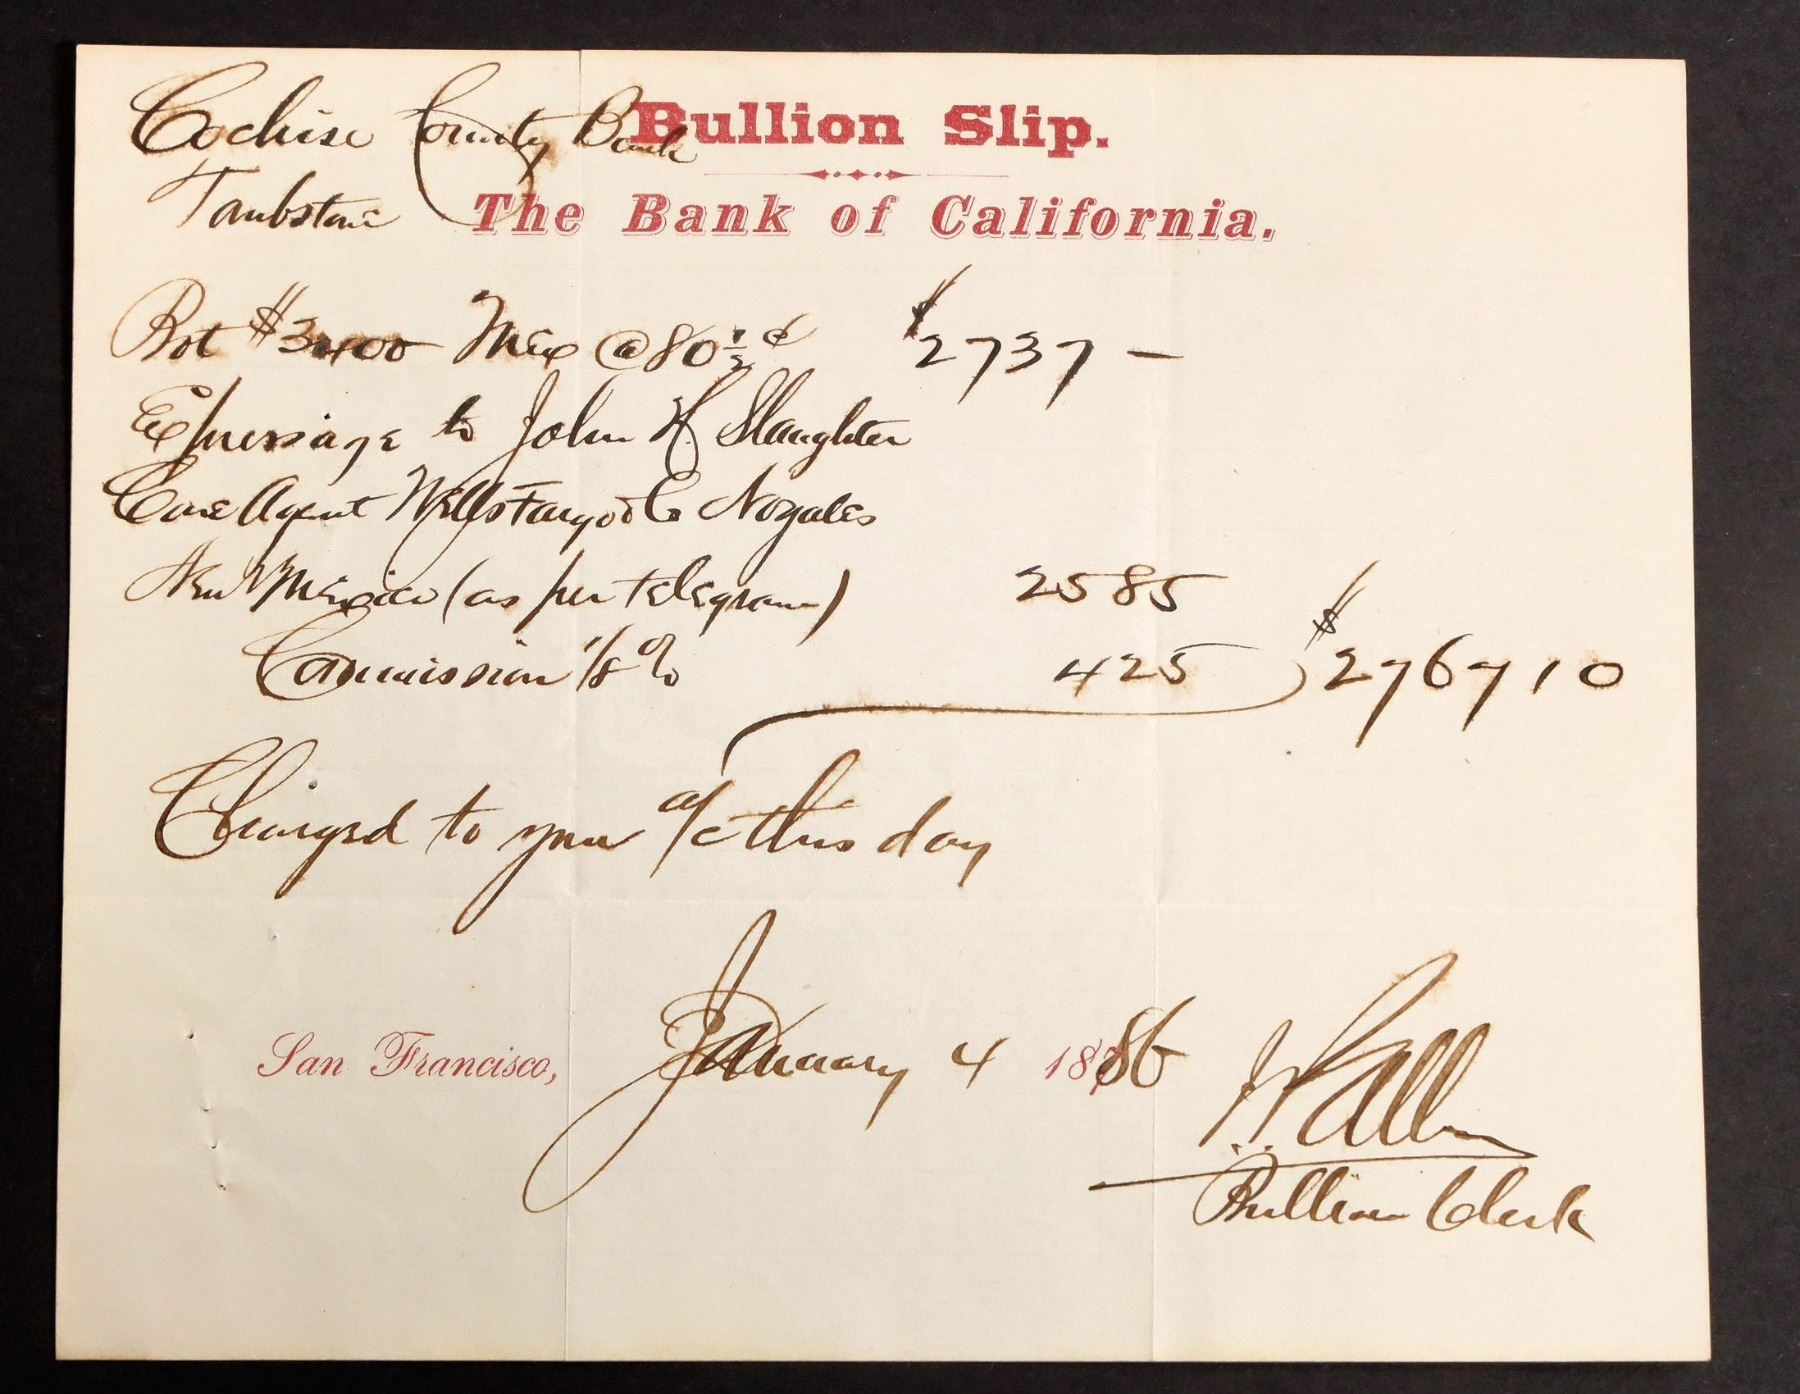 Bullion Slip.
Cochise County Bank
The Bank of California.
Tombstone
Bot $3400 Mex @ 80 1/2 ¢ $2737 —
Expressage to John H Slaughter
Care Agent Wells Fargo & Co Nogales
New Mexico (as per telegram) 25 85
Commission 1/8 % 4 25 $2767 10
Charged to your a/c this day
San Francisco, January 4 1886
Bullion Clerk